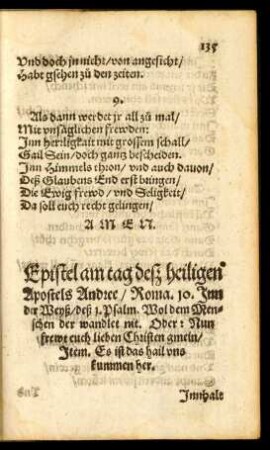 135
Vnd doch jn nicht / von angesicht /
Habt gsehen zů den zeiten.
9.
Als dann werdet jr all zů mal /
Mit vnsäglichen frewden:
Jnn herrligkeit mit grossem schall /
Gail Sein / doch gantz bescheiden.
Jnn Himmels thron / vnd auch dauon /
Deß Glaubens End erst bringen /
Die Ewig frewd / vnd Seligkeit /
Da soll euch recht gelingen /
A M E N.
Epistel am tag deß heiligen
Apostels Andree / Roma. 10. Jnn
der Weyß / deß 1. Psalm. Wol dem Men-
schen der wandlet nit. Oder: Nun
frewt euch lieben Christen gmein /
Jtem. Es ist das hail vns
kummen her.
Jnnhalt